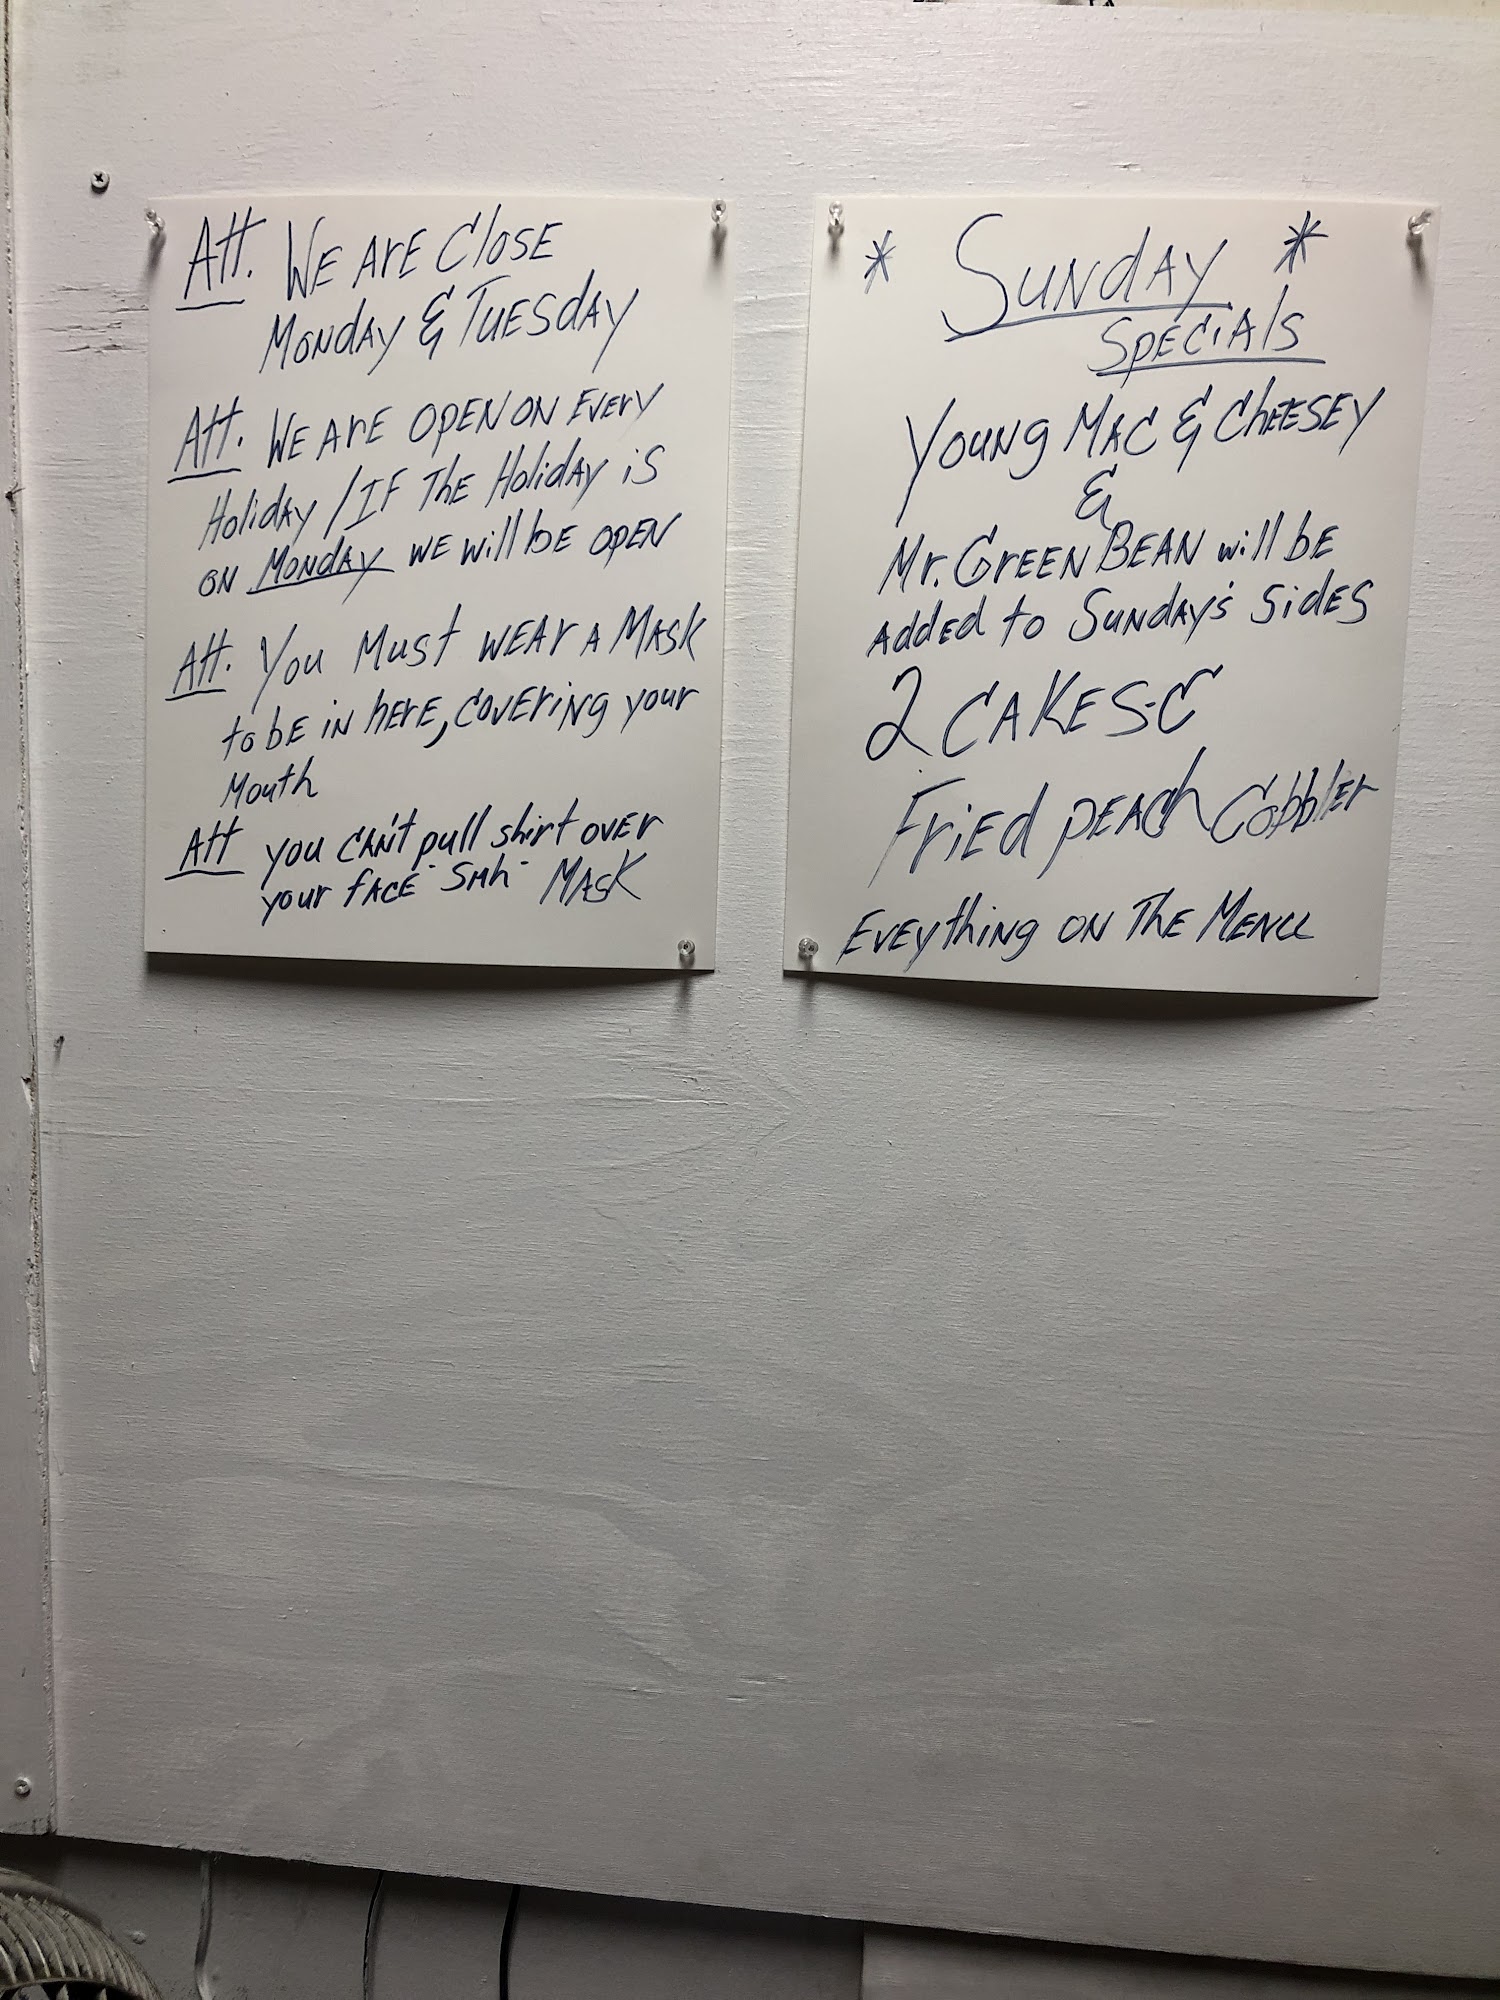 Att. WE ArE ClOSE
MONdAY & TUESdAY
Att. WE ArE OPEN ON EVErY
HolidAY / IF ThE HolidAY iS
ON MONdAY WE will bE OPEN
Att. You Must WEAr A MASk
to bE iN hErE, COVEriNg your
Mouth
Att you CAN't pull shirt OVEr
your fACE -SMh- MASK
* SUNdAY *
SpECiAlS
YOUNg MAC & ChEESEY
&
Mr. GrEEN BEAN will bE
Added to SuNdAy's SidES
2 CAKES-C
FriEd pEACh CobblEr
EvEythiNg ON ThE MENU